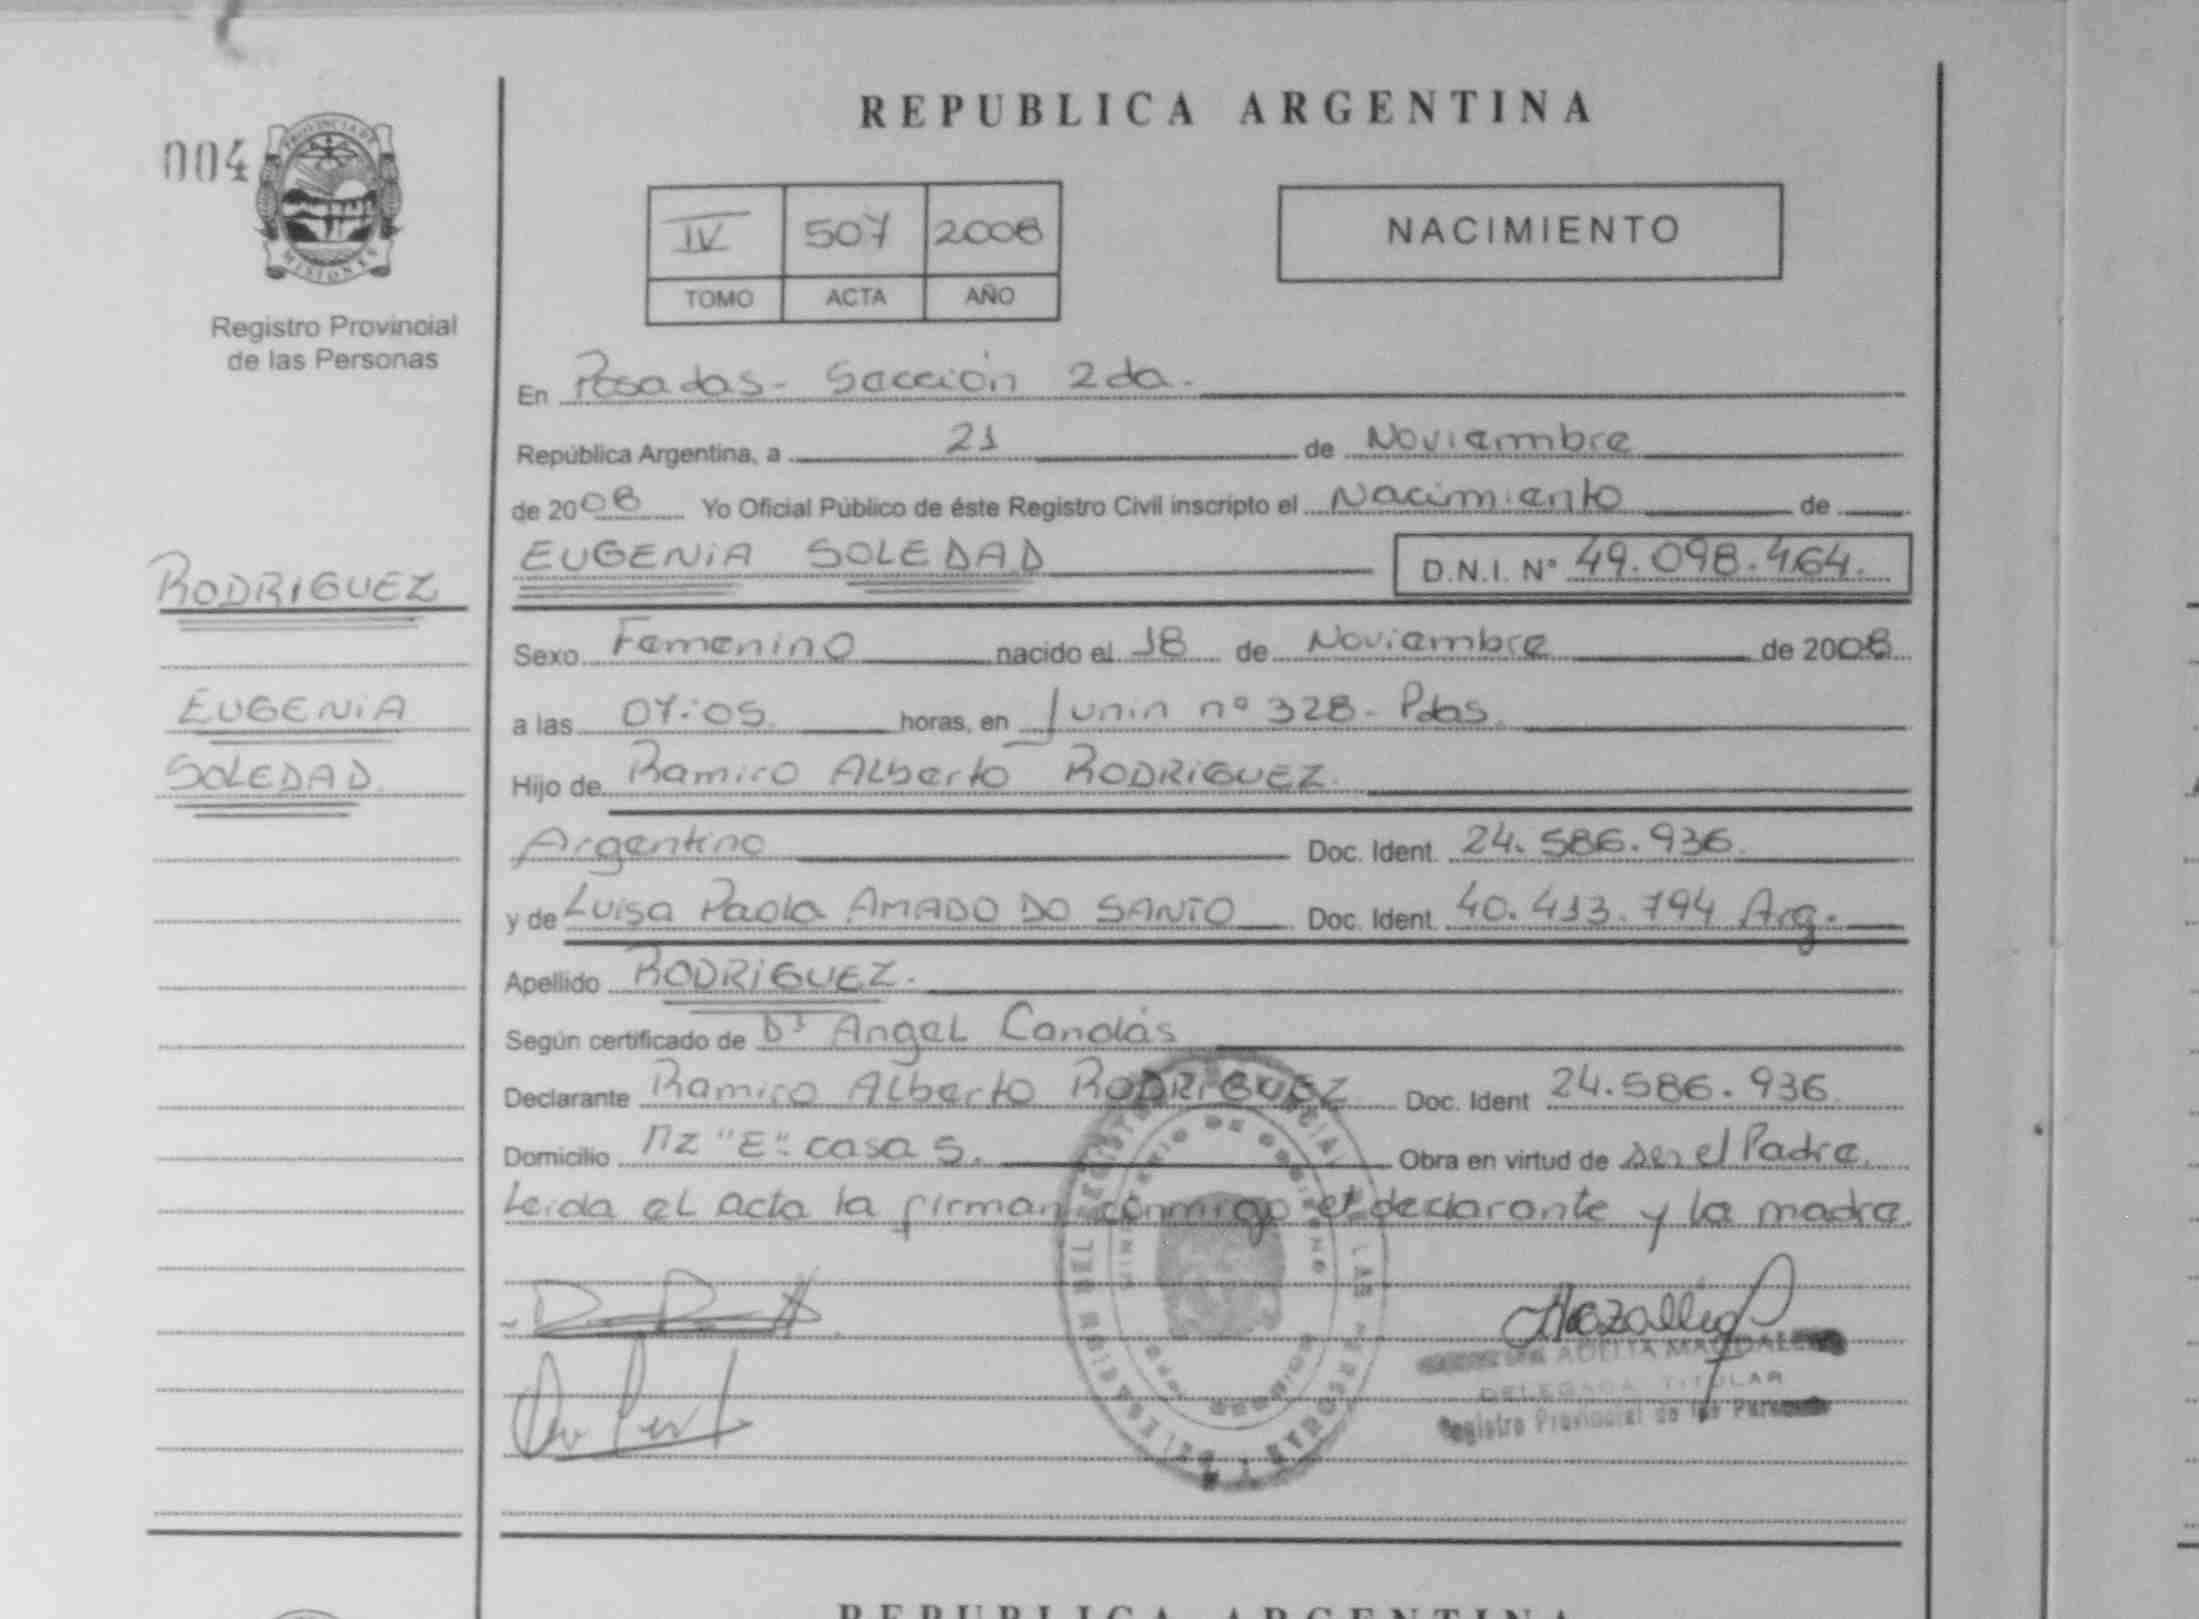 REPUBLICA ARGENTINA
004
PROVINCIA DE
MISIONES
Registro Provincial
de las Personas
IV 507 2008
TOMO ACTA AÑO
NACIMIENTO
En Posadas - Sección 2da.
República Argentina, a 21 de Noviembre
de 2008 Yo Oficial Público de éste Registro Civil inscripto el Nacimiento de
RODRIGUEZ
EUGENIA
SOLEDAD
EUGENIA SOLEDAD D.N.I. N° 49.098.464.
Sexo Femenino nacido el 18 de Noviembre de 2008
a las 07:05 horas, en Junin nº 328 - Pdas.
Hijo de Ramiro Alberto RODRIGUEZ.
Argentino Doc. Ident. 24.586.936.
y de Luisa Paola AMADO DO SANTO Doc. Ident. 40.413.794 Arg.
Apellido RODRIGUEZ.
Según certificado de Dr Angel Candás
Declarante Ramiro Alberto RODRIGUEZ Doc. Ident 24.586.936.
Domicilio Mz "E" casa 5. Obra en virtud de ser el Padre.
Leida el acta la firman conmigo el declarante y la madre
ADELITA MAGDALENA
DELEGADA TITULAR
Registro Provincial de las Personas
REPUBLICA ARGENTINA